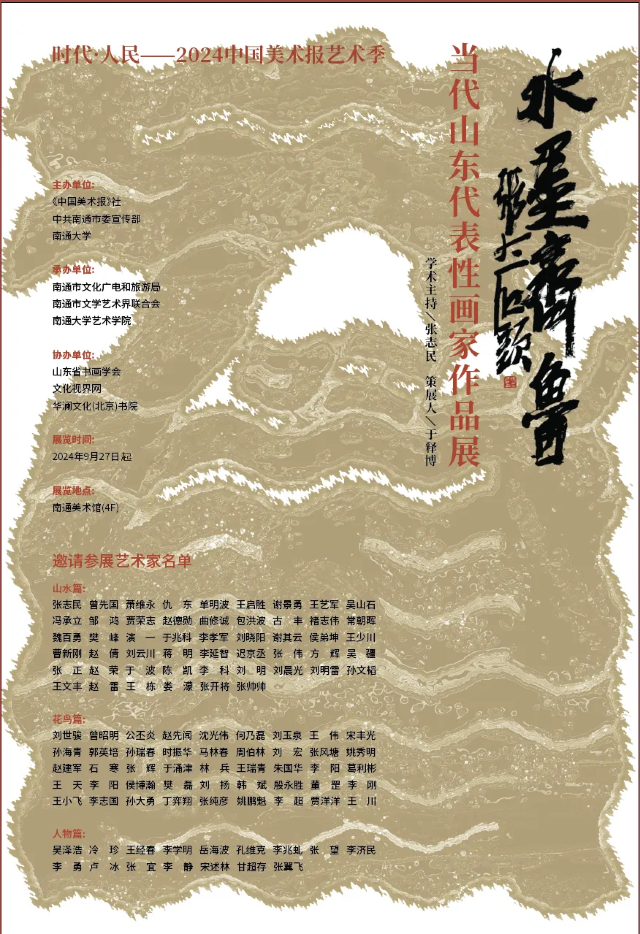 时代·人民——2024中国美术报艺术季
水墨齐鲁
当代山东代表性画家作品展
学术主持\张志民 策展人\于释博
主办单位:
《中国美术报》社
中共南通市委宣传部
南通大学
承办单位:
南通市文化广电和旅游局
南通市文学艺术界联合会
南通大学艺术学院
协办单位:
山东省书画学会
文化视界网
华澜文化(北京)书院
展览时间:
2024年9月27日起
展览地点:
南通美术馆(4F)
邀请参展艺术家名单
山水篇:
张志民 曾先国 萧维永 仇东 单明波 王启胜 谢景勇 王艺军 吴山石
冯承立 邹鸿 贾荣志 赵德勋 曲修诚 包洪波 古丰 禇志伟 常朝晖
魏百勇 樊峰 演一 于兆科 李孝军 刘晓阳 谢其云 侯弟坤 王少川
曹新刚 赵倩 刘云川 蒋明 李延智 迟京丞 张伟 方辉 吴疆
张正 赵荣 于波 陈凯 李科 刘明 刘晨光 刘明雷 孙文韬
王文丰 赵雷 王栋 娄濛 张开将 张帅帅
花鸟篇:
刘世骏 曾昭明 公丕炎 赵先闻 沈光伟 何乃磊 刘玉泉 王伟 宋丰光
孙海青 郭英培 孙瑞春 时振华 马林春 周伯林 刘宏 张风塘 姚秀明
赵建军 石寒 张辉 于涌津 林兵 王瑞青 朱国华 李阳 葛利彬
王天 李阳 侯博瀚 樊磊 刘扬 韩斌 殷永胜 董罡 李刚
王小飞 李志国 孙大勇 丁弈翔 张纯彦 姚鹏魁 李超 贾洋洋 王川
人物篇:
吴泽浩 冷珍 王经春 李学明 岳海波 孔维克 李兆虬 张望 李济民
李勇 卢冰 张宜 李静 宋述林 甘超存 张翼飞